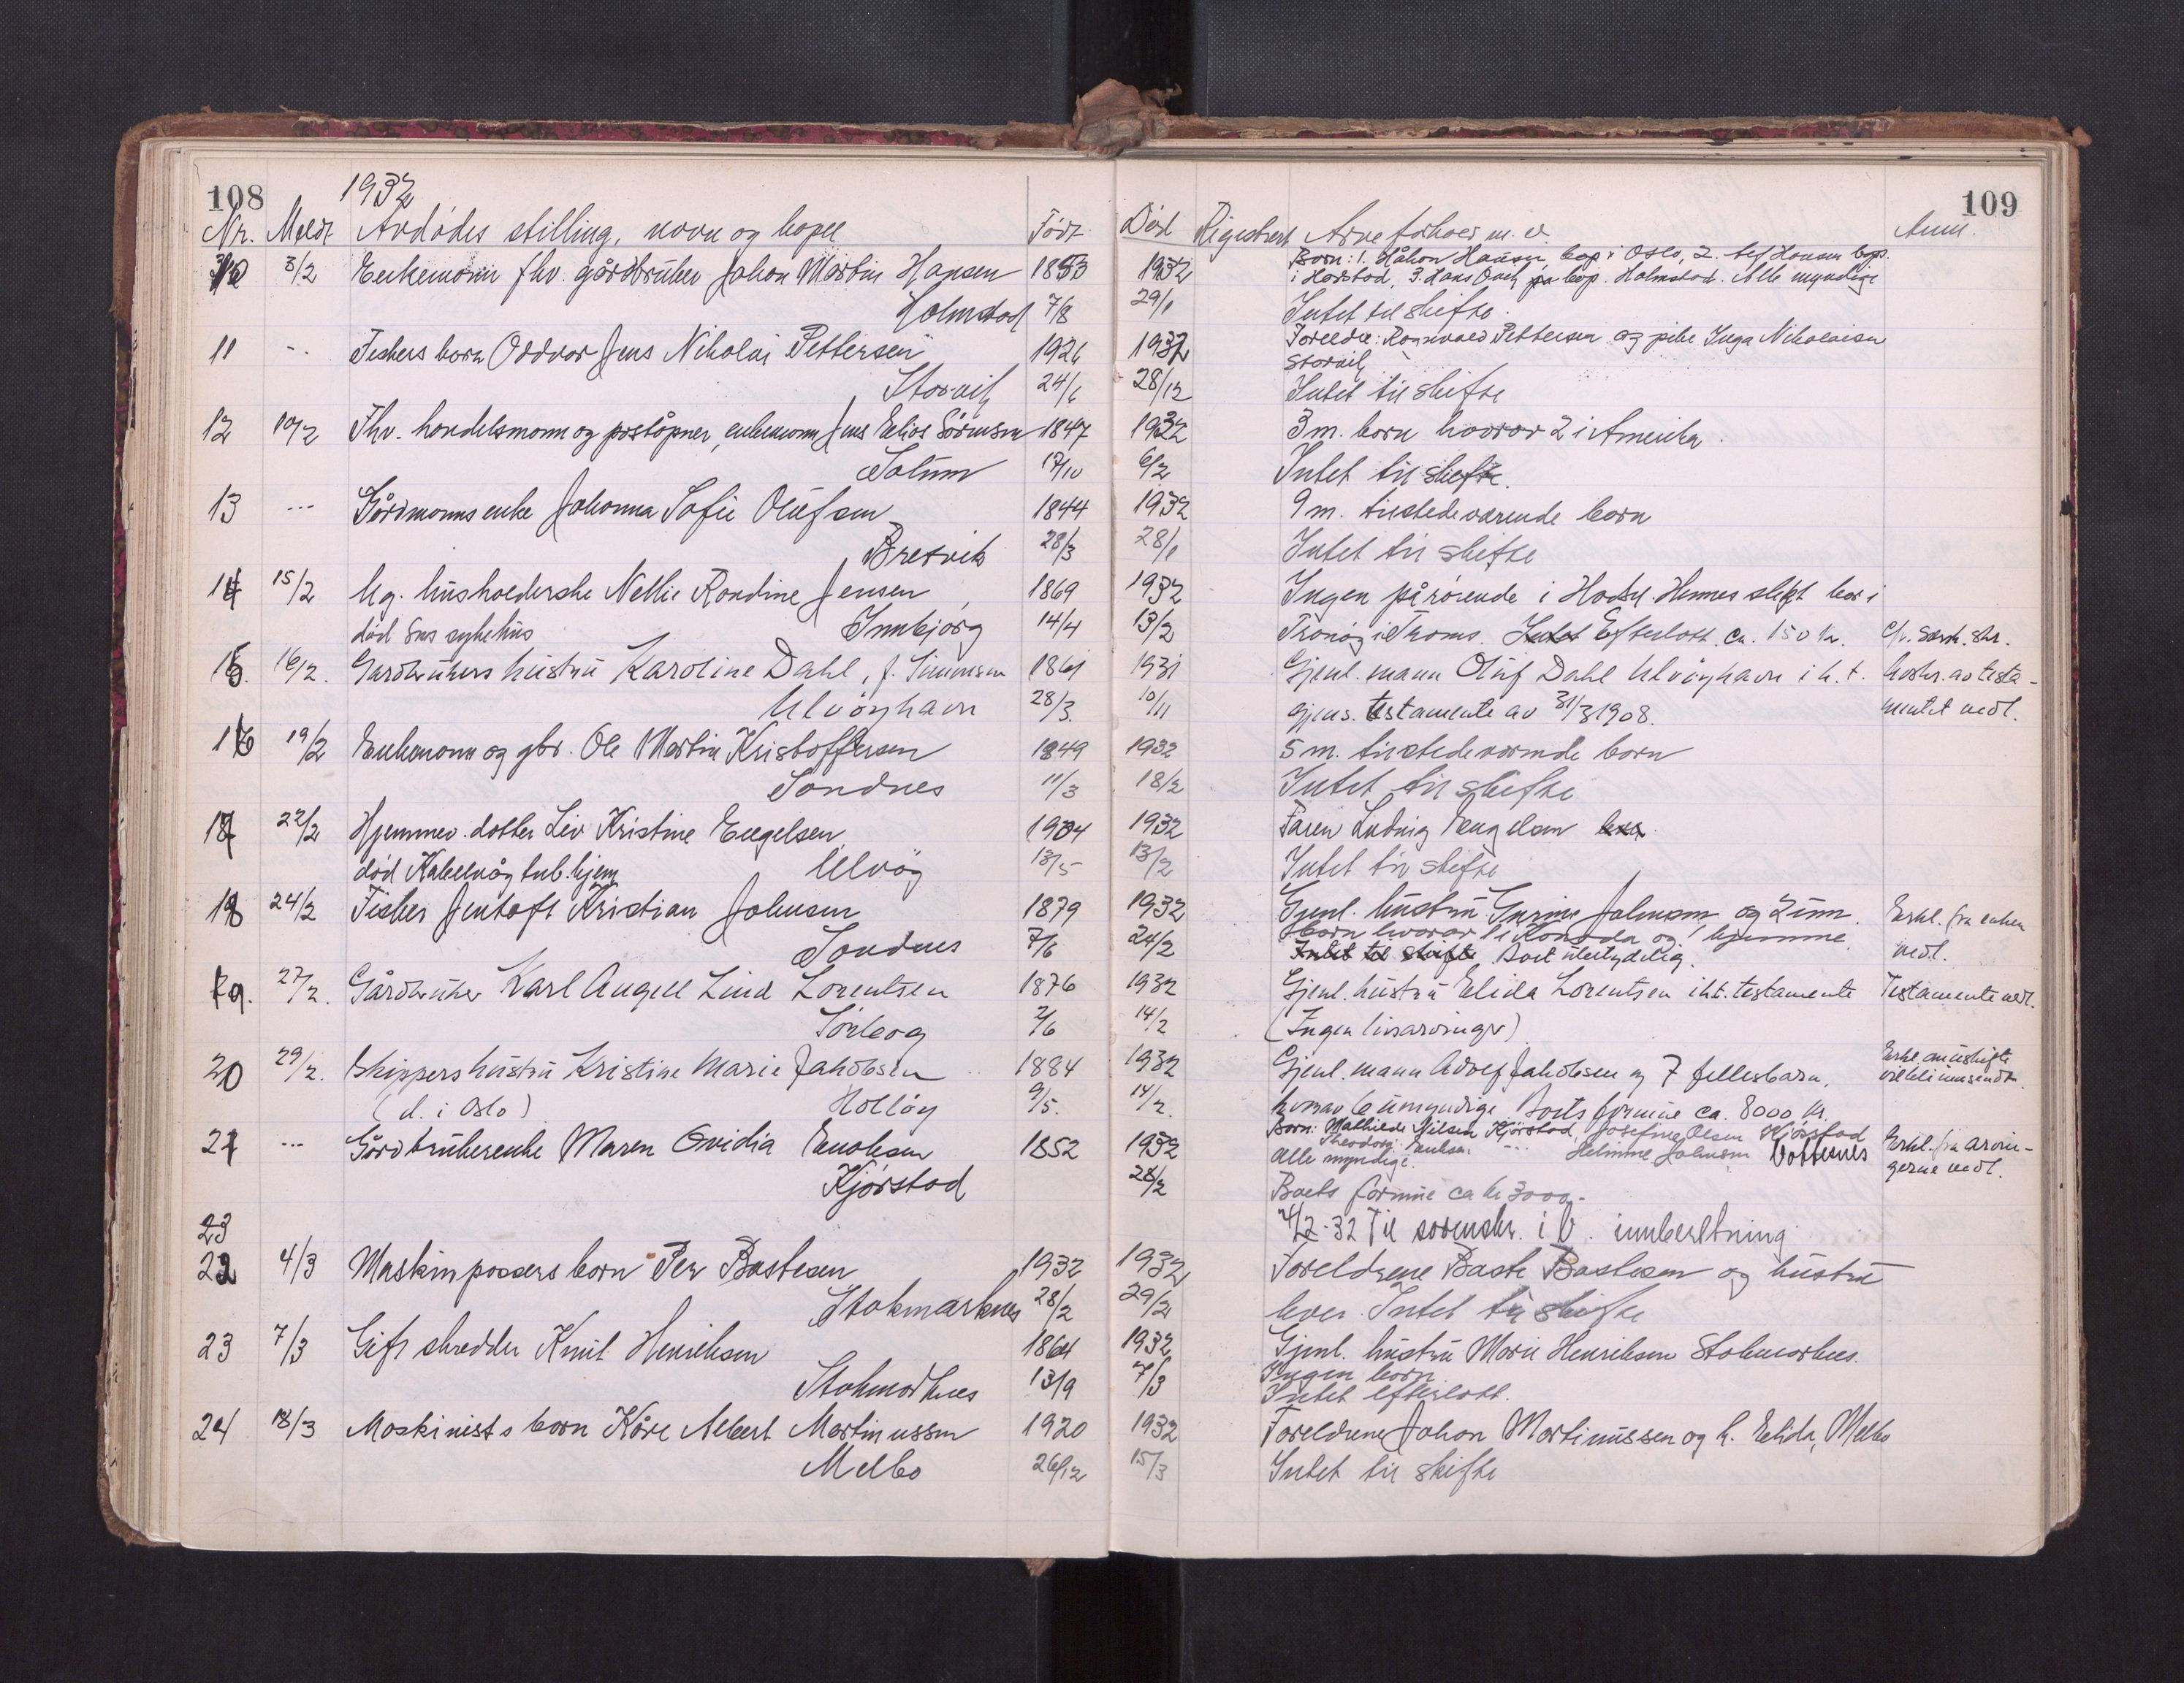 108
1932
109
Nr. Meldt Avdødes stilling, navn og bopel Født Død Registrert Arveforhold m. v. Anm.
10 3/2 Enkemann fhv. gårdbruker Johan Martin Hansen 1853 1932 Barn: 1. Håkon Hansen, bop i Oslo, 2. Hansen bop.
i Harstad, 3. Hans bop. Holmstad. Alle myndige
Holmstad 7/8 29/1 Intet til skifte.
11 - Fiskers barn Oddvar Jens Nikolai Pettersen 1926 1932 Foreldre: Ragnvald Pettersen og pike Inga Nikolaisen
Storvik
Storvik 24/6 28/12 Intet til skifte
12 10/2 Fhv. handelsmann og poståpner, enkemann Jens Elias Sörensen 1847 1932 3 m. barn hvorav 2 i Amerika.
Solum 17/10 6/2 Intet til skifte.
13 --- Gårdmanns enke Johanna Sofie Olufsen 1844 1932 9 m. tilstedeværende barn
Bresvik 28/3 28/1 Intet til skifte
14 15/2 Ug. husholderske Nellie Randine Jensen 1869 1932 Ingen pårørende i Hadsel. Hennes slekt bor i
død Sms sykehus Innbjorg 14/4 13/2 i Troms. Intet Efterlatt ca. 150 kr.
15. 16/2. Gardbrukers hustru Karoline Dahl, f. Simonsen 1861 1931 Gjenl. mann Oluf Dahl Ulvöyhavn i h. t. avskr. av testa-
Ulvöyhavn 28/3. 10/11 gjens. testamente av 31/3 1908. mentet vedl.
16 19/2 Enkemann og gbr. Ole Martin Kristoffersen 1849 1932 5 m. tilstedeværende barn
Sandnes 11/3 18/2 Intet til skifte
17 22/2 Hjemmev. datter Liv Kristine Engelsen 1904 1932 Faren Ludvig Engelsen
død Kabelvåg tub. hjem Ulvöy 13/5 13/2 Intet til skifte
18 24/2 Fisker Jentoft Kristian Johnsen 1879 1932 Gjenl. hustru Gurine Johnsen og 2 um. Erkl. fra enken
barn hvorav 1 i Kanada og 1 hjemme.
Sandnes 7/6 24/2 Intet til skifte Boet ubetydelig. vedl.
19. 27/2. Gårdbruker Karl Angell Lind Lorentsen 1876 1932 Gjenl. hustru Elida Lorentsen iht. testamente Testamente vedl.
Sörbog 2/6 14/2 (Ingen livsarvinger)
20 29/2. Skippers hustru Kristine Marie Jakobsen 1884 1932 Gjenl. mann Adolf Jakobsen og 7 fellesbarn, Erkl. om uskifte
vil bli innsendt.
(d. i Oslo) Holdöy 9/5. 14/2. hvorav 6 umyndige Boets formue ca. 8000 kr.
21 --- Gårdbrukerenke Maren Ovidia Enoksen 1852 1932 Barn: Mathilde Nilsen Kjörstad, Josefine Olsen Kjörstad
Theodor Enoksen --- Helmine Johnsen Vottesnes Erkl. fra arvin-
Alle myndige. gerne vedl.
Kjörstad 28/2 Boets formue ca kr 3000.-
23 4/2-32 Til sorenskr. i V. innberetning
22 4/3 Maskinpassers barn Per Bastesen 1932 1932 Foreldrene Baste Bastesen og hustru
Stokmarknes 28/2 29/2 lever. Intet til skifte
23 7/3 Gift skredder Knut Henriksen 1864 1932 Gjenl. hustru Marie Henriksen Stokmarknes.
Ingen barn
Stokmarknes 13/9 7/3 Intet efterlatt.
24 18/3 Maskinists barn Kåre Albert Martinussen 1920 1932 Foreldrene Johan Martinussen og h. Elida, Melbo
Melbo 26/12 15/3 Intet til skifte